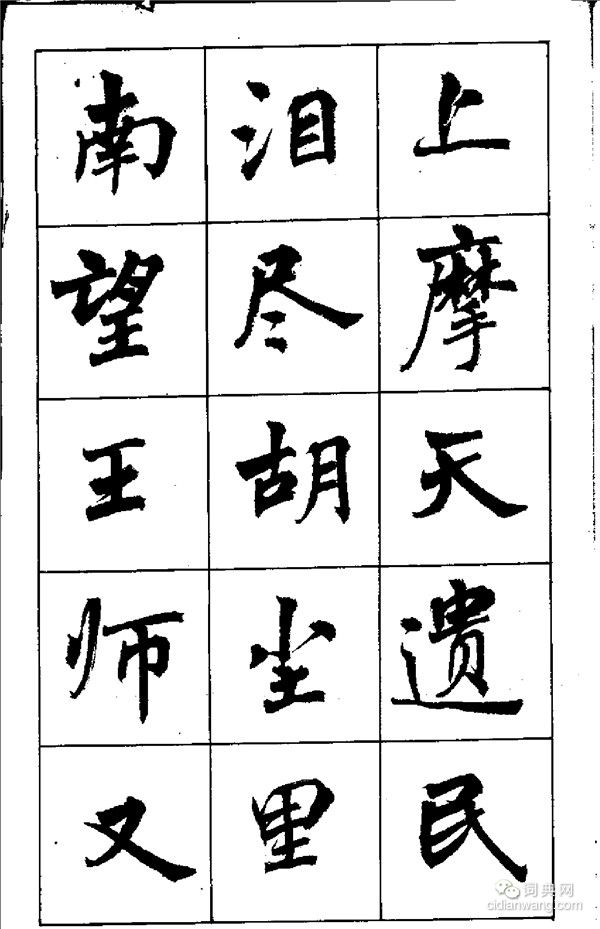 上摩天遗民
泪尽胡尘里
南望王师又
词典网
cidianwang.com